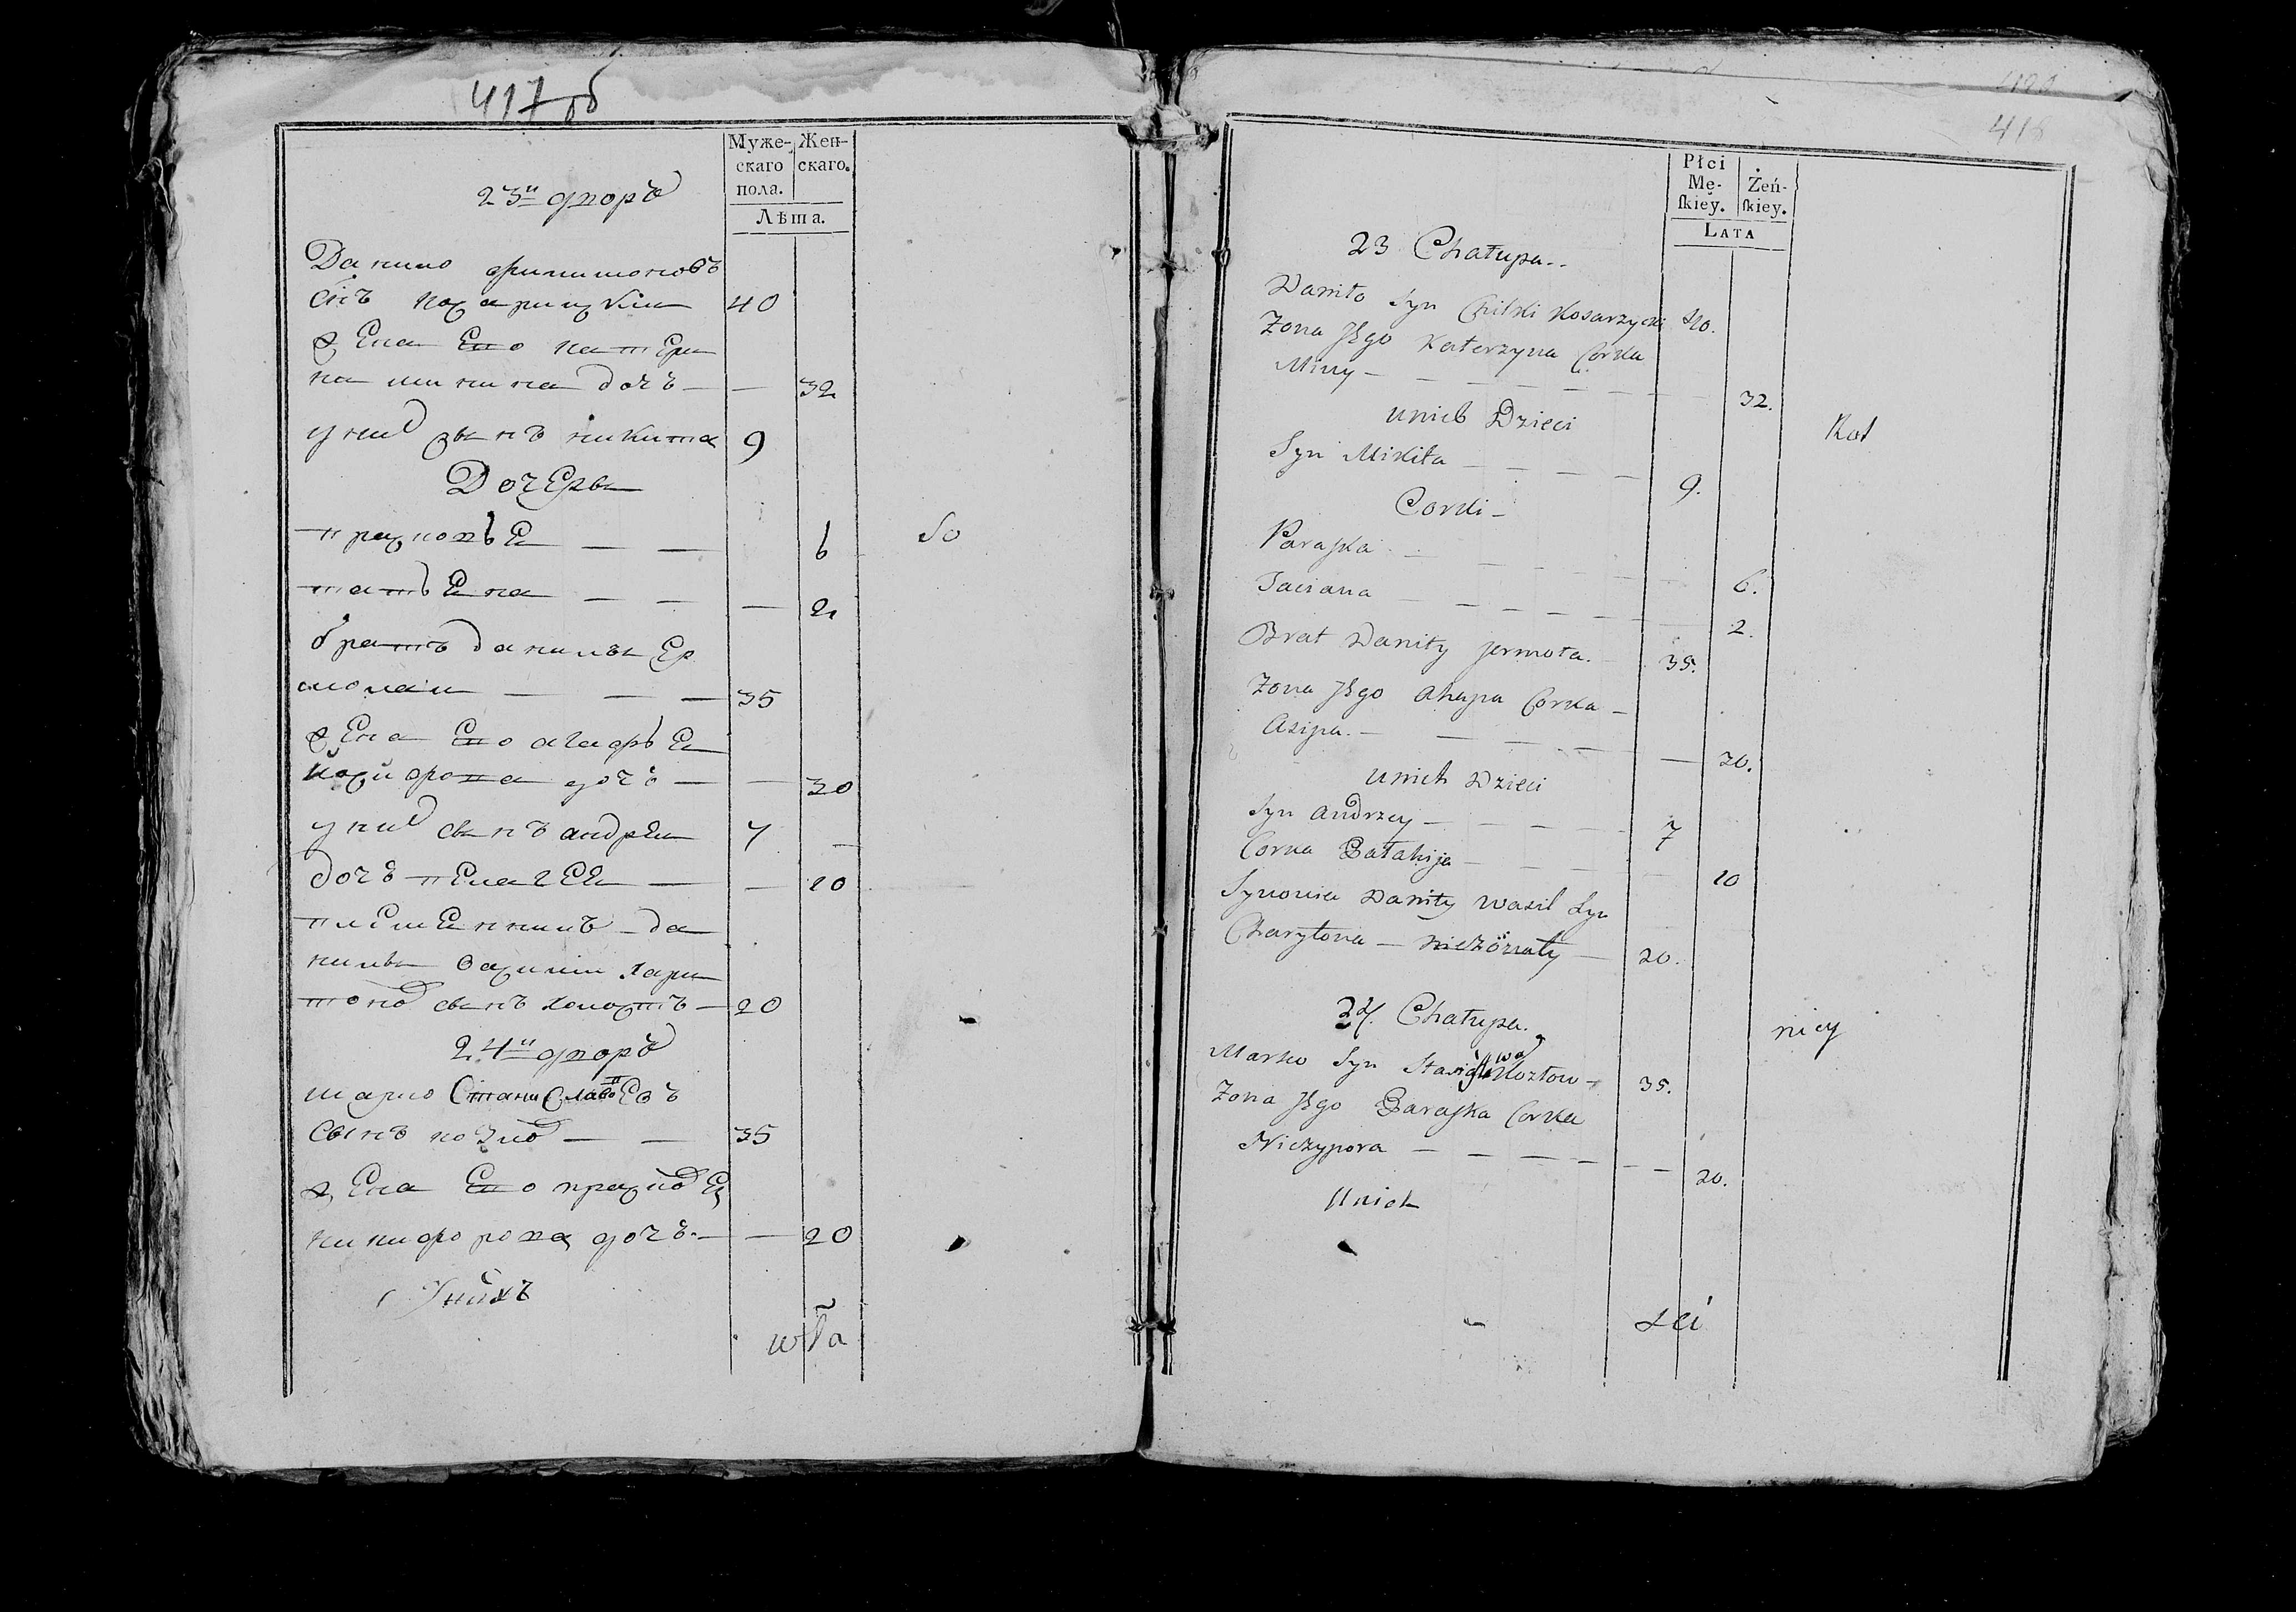 417 об
Муже-
скаго
пола.
Жен-
скаго.
Лѣта.
23й дворъ
Данило филимоновъ
снъ косарицкiи 40
жена Ево катери
на минина дочъ — — 32
у них сынъ никита 9
Дочери
прасковья — — 6
So
татьяна — — — 2
братъ данилы Ер
молаи — — — 35
жена Ево агафья
иосифова дочъ — — 30
у них сынъ андрей 7 —
дочъ пелагея — — 10
племенникъ да
нилы василии хари
тонов сынъ холостъ — 20
24й дворъ
марко Станиславовъ
сынъ козлов — — 35
жена Ево прасковя
никифорова дочъ — — 20
У нихъ
418
Płci
Mę-
skiey.
Żeń-
skiey.
LATA
23 Chałupa
Daniło Syn Chilki Kosarzycki 40.
Żona Jego Katerzyna Corka
Miny — — — — 32.
unich Dzieci
Kat
Syn Mikita — — — — 9.
Corki —
Paraska — — — — 6.
Taciana — — — — 2.
Brat Daniły Jermoła. 35.
Żona Jego Ahapa Corka —
Asipa. — — — — 30.
unich Dzieci
Syn Andrzey — — — — 7
Corka Pałahija — — — 10
Synowiec Daniły Wasil Syn
Charytona — nieżonaty — 20.
24. Chałupa.
nicy
Marko Syn Stanisława Kozłow — 35.
Żona Jego Paraska Corka
Niczypora — — — — 20.
Unich